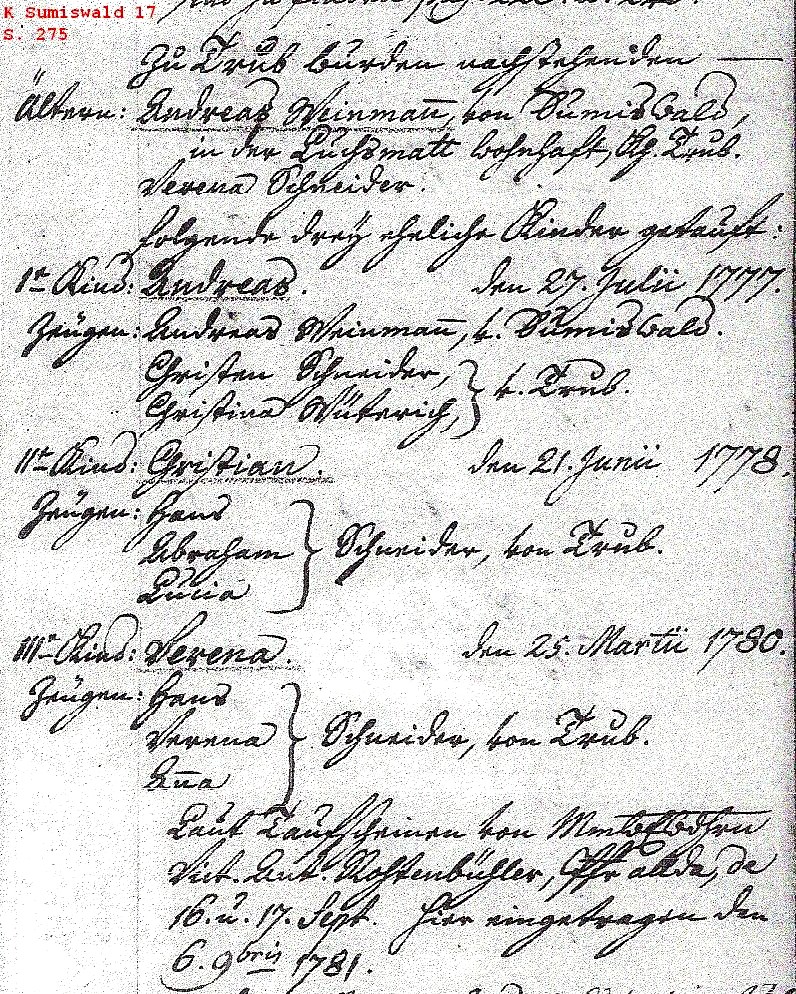 K Sumiswald 17
S. 275
Zu Trub wurden nachstehenden —
Ältern: Andreas Weinman̅, von Sumiswald,
in der Luchsmatt wohnhaft, Kg. Trub.
Verena Schneider.
folgende drey eheliche Kinder getauft:
I.te Kind: Andreas. den 27. Julii 1777.
Zeugen: Andreas Weinman̅, v. Sumiswald.
Christen Schneider, } v. Trub.
Christina Wüterich,
II.te Kind: Christian. den 21. Junii 1778.
Zeugen: Hans
Abraham } Schneider, von Trub.
Lucia
III.te Kind: Verena. den 25. Martii 1780.
Zeugen: Hans
Verena } Schneider, von Trub.
An̅a
Laut Taufscheinen von
Vict. Ant. Rohtenbühler, Pfr allda, de
16. u. 17. Sept. hier eingetragen den
6. 9bris 1781.